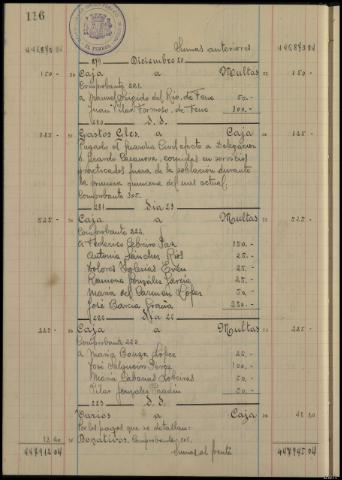 116
EL FERROL
Sumas anteriores
Diciembre 20
150.- Caja a Multas 150.-
Comprobante 221.
a Manuel del Rio, de Fene 50.-
Juan Vilar Formoso, de Fene 100.-
D. D.
125.- Gastos Gles. a Caja 125.-
Pagado al Guardia Civil afecto a Delegación
Ricardo Casanova, comidas en servicios
practicados fuera de la población durante
la primera quincena del mes actual,
Comprobante
Dia 23
525.- Caja a Multas 525.-
Comprobante 222.
a Federico Paz 150.-
Antonia Sánchez Rios 25.-
Dolores Iglesias 25.-
Ramona González García 25.-
Maria del Carmen López 50.-
José Barcia 250.-
Dia 26
225.- Caja a Multas 225.-
Comprobante 223.
a Maria Bouza López 25.-
José Salgueiro Pérez 100.-
Maria Cabanas 50.-
Pilar González 50.-
D. D.
Varios a Caja
Por los pagos que se detallan:
Donativos, Comprobante
Sumas al frente